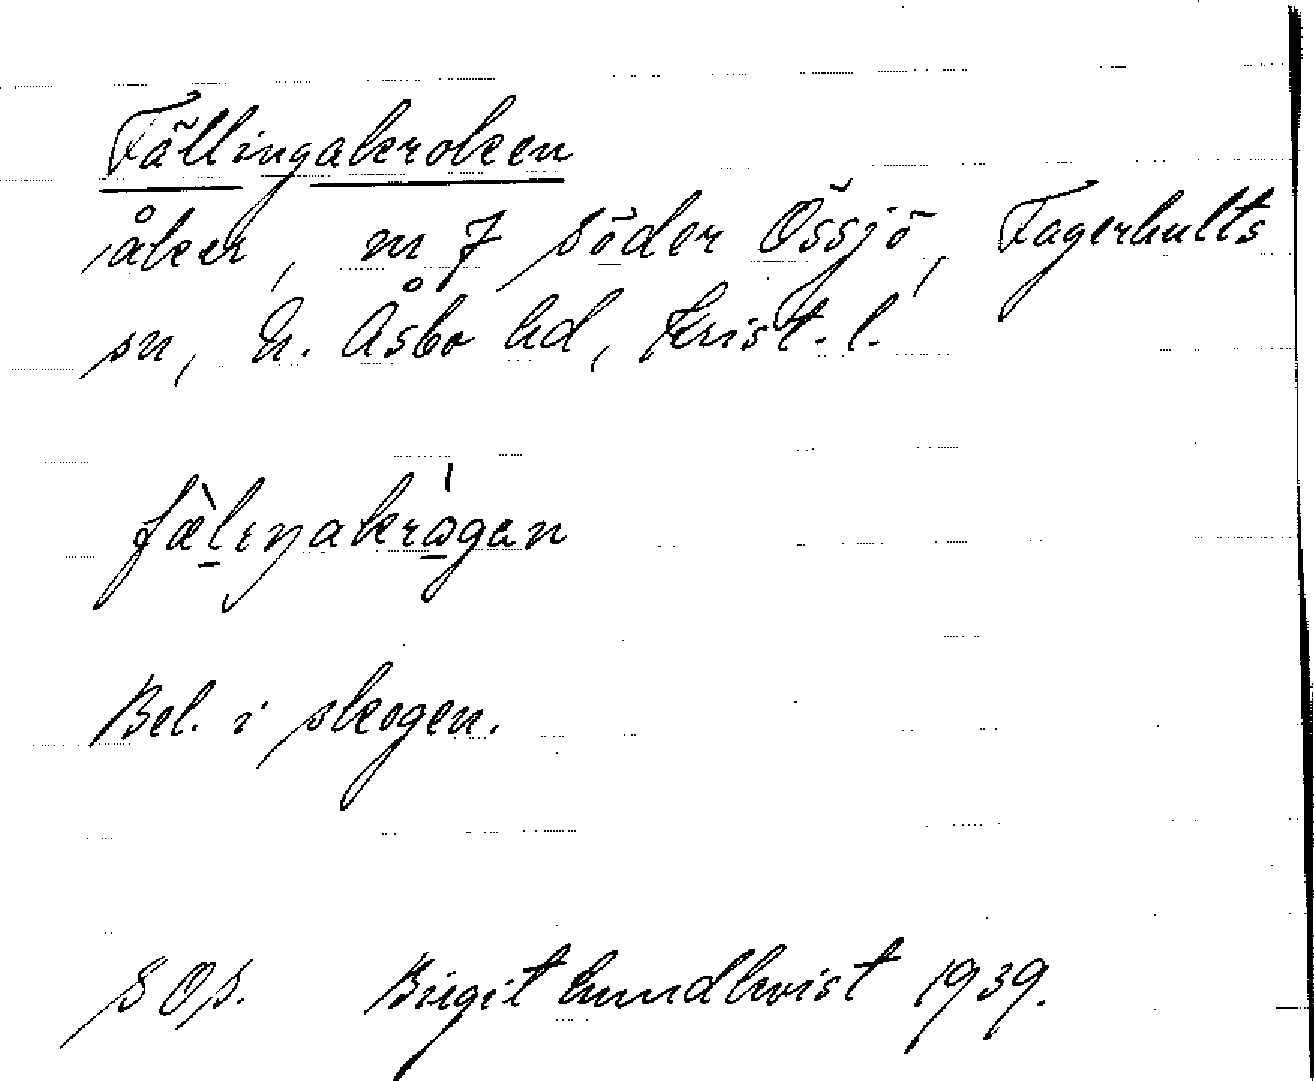 Fällingakroken
åker, m 7 Söder Össjö, Fagerhults
sn, N. Åsbo hd, Krist. l.
fæ̀lıŋakrågan
Bel. i skogen.
SOS. Birgit Lundkvist 1939.